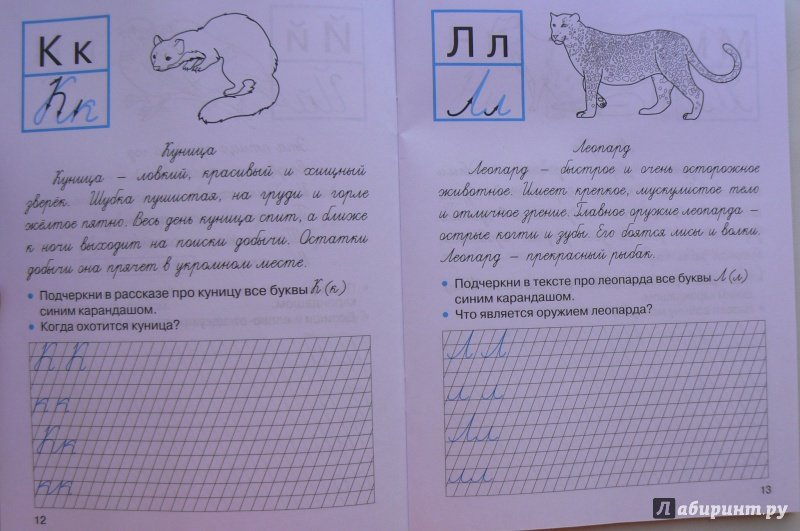 К к
Кк
Куница
Куница – ловкий, красивый и хищный
зверёк. Шубка пушистая, на груди и горле
жёлтое пятно. Весь день куница спит, а ближе
к ночи выходит на поиски добычи. Остатки
добычи она прячет в укромном месте.
• Подчеркни в рассказе про куницу все буквы К (к)
синим карандашом.
• Когда охотится куница?
К К
к к
Кк
кк
12
Л л
Лл
Леопард
Леопард – быстрое и очень осторожное
животное. Имеет крепкое, мускулистое тело
и отличное зрение. Главное оружие леопарда –
острые когти и зубы. Его боятся лисы и волки.
Леопард – прекрасный рыбак.
• Подчеркни в тексте про леопарда все буквы Л (л)
синим карандашом.
• Что является оружием леопарда?
Л Л
л л
Лл
лл
13
Лабиринт.ру